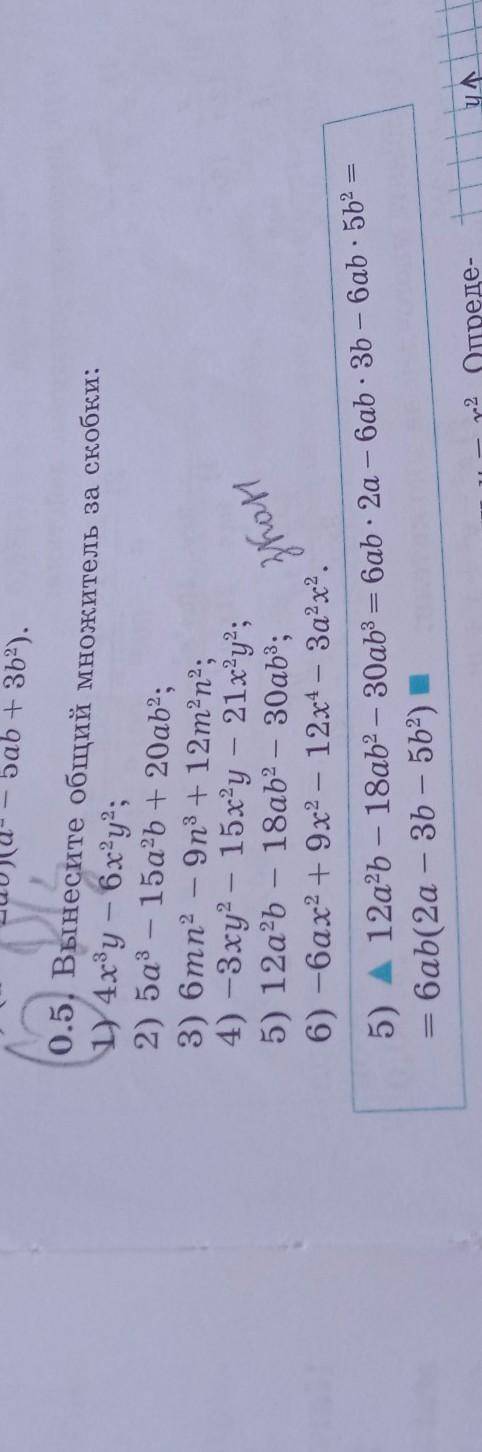 − 5ab + 3b²).
0.5. Вынесите общий множитель за скобки:
1) 4x³y − 6x²y²;
2) 5a³ − 15a²b + 20ab²;
3) 6mn² − 9n³ + 12m²n²;
4) −3xy² − 15x²y − 21x²y²;
5) 12a²b − 18ab² − 30ab³;
6) −6ax² + 9x² − 12x⁴ − 3a²x².
5) ▲ 12a²b − 18ab² − 30ab³ = 6ab · 2a − 6ab · 3b − 6ab · 5b² =
= 6ab(2a − 3b − 5b²) ■
Опреде-
y